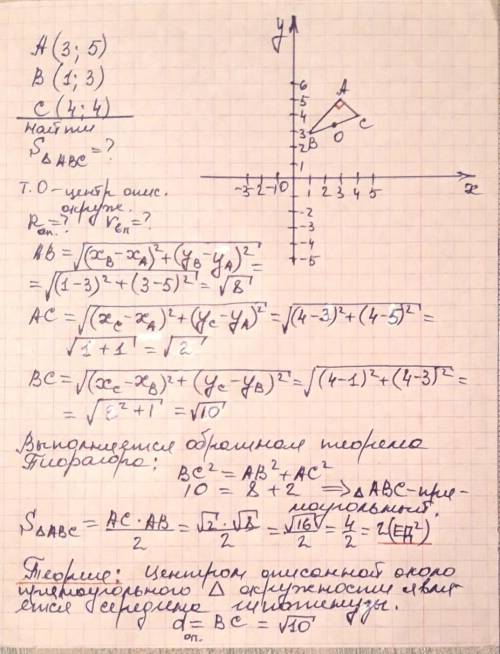 A (3; 5)
B (1; 3)
C (4; 4)
Найти
S△ABC = ?
т. О - центр опис.
окруж.
Rоп. = ? rвп = ?
AB = √((xB - xA)² + (yB - yA)²) =
= √((1-3)² + (3-5)²) = √8
AC = √((xC - xA)² + (yC - yA)²) = √((4-3)² + (4-5)²) =
√(1+1) = √2
BC = √((xC - xB)² + (yC - yB)²) = √((4-1)² + (4-3)²) =
= √(3² + 1) = √10
Выполняется обратная теорема
Пифагора:
BC² = AB² + AC²
10 = 8 + 2 ⟹ △ABC - пря-
моугольный.
S△ABC = AC · AB / 2 = √2 · √8 / 2 = √16 / 2 = 4/2 = 2 (ЕД²)
Теория: Центром описанной около
прямоугольного △ окружности явля-
ется середина гипотенузы.
dоп. = BC = √10
y
6
5
4
3
2
1
-3 -2 -1 0 1 2 3 4 5
x
-2
-3
-4
-5
A
B
O
C